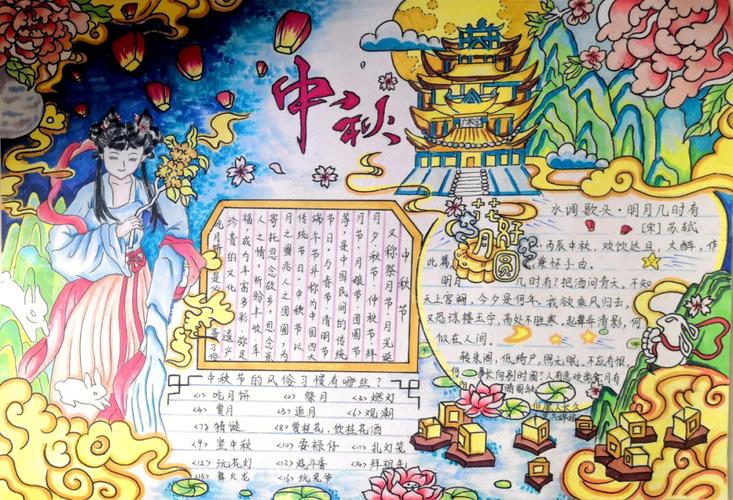 中秋
中秋节
又称祭月节、月光诞
月夕、秋节、仲秋节、拜
月节、月娘节、团圆节
等，是中国民间的传统
节日。与春节、清明节
端午节并称为中国四大
传统节日。中秋节以
月之圆兆人之团圆，为
寄托思念故乡，思念亲
人之情，祈盼丰收、幸
福，成为丰富多彩、弥足
珍贵的文化遗产
花好月圆
水调歌头·明月几时有
[宋]苏轼
丙辰中秋，欢饮达旦，大醉，作
此篇，兼怀子由。
明月几时有？把酒问青天。不知
天上宫阙，今夕是何年。我欲乘风归去，
又恐琼楼玉宇，高处不胜寒。起舞弄清影，何
似在人间。
转朱阁，低绮户，照无眠。不应有恨，
何事长向别时圆？人有悲欢离合，月有
阴晴圆缺
中秋节的风俗习惯有哪些？
<1> 吃月饼 <2> 祭月 <3> 燃灯
<4> 赏月 <5> 追月 <6> 观潮
<7> 猜谜 <8> 赏桂花、饮桂花酒
<9> 竖中秋 <10> 树中秋 <11> 扎灯笼
<12> 玩花灯 <13> 烧斗香 <14> 拜祖先
<15> 舞火龙 <16> 玩兔爷